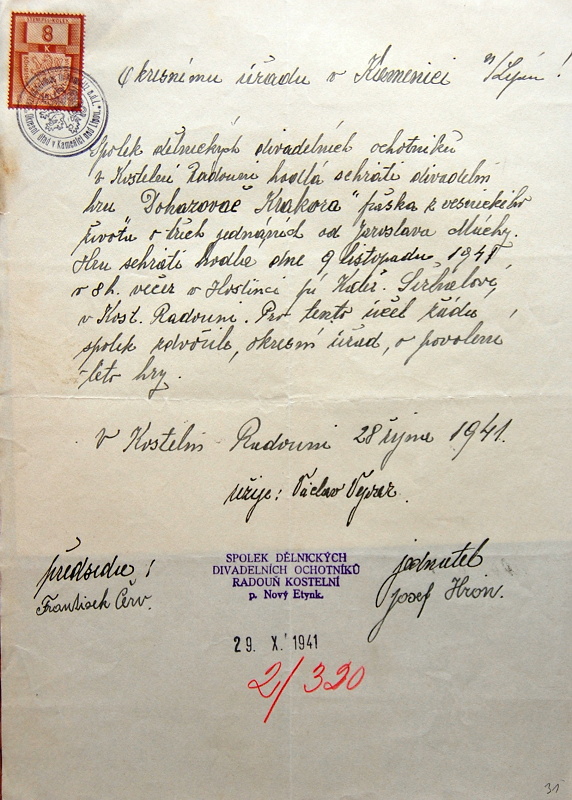 STEMPEL-KOLEK
8
K
Okresní úřad v Kamenici nad Lipou
Okresnímu úřadu v Kamenici n/Lip.!
Spolek dělnických divadelních ochotníků
v Kostelní Radouni hodlá sehráti divadelní
hru "Dohazovač Krakora" fraška z vesnického
života o třech jednáních od Jaroslava Múchy.
Hru sehráti hodlá dne 9 listopadu 1941
v 8h. večer v Hostinci pí Kateř.
v Kost. Radouni. Pro tento účel žádá
spolek zdvořile, okresní úřad, o povolení
této hry.
V Kostelní Radouni 28 října 1941.
režie: Václav
předseda:
František Červ.
SPOLEK DĚLNICKÝCH
DIVADELNÍCH OCHOTNÍKŮ
RADOUŇ KOSTELNÍ
p. Nový Etynk.
jednatel
Josef Hron.
29. X. 1941
2/320
35